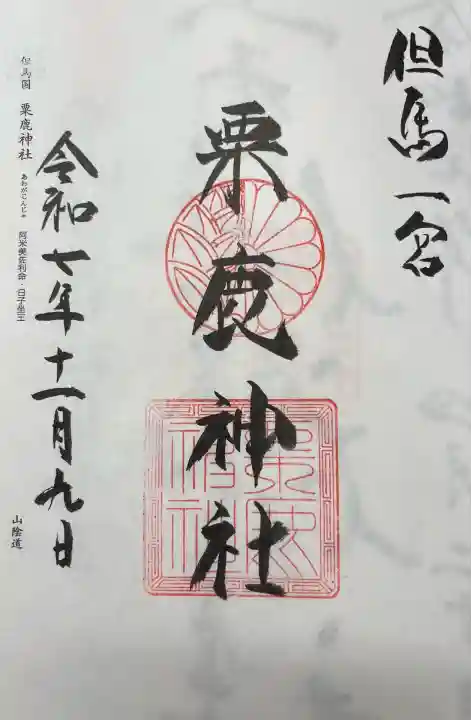 但馬一宮
粟鹿神社
令和七年十一月九日
但馬国 粟鹿神社 あわがじんじゃ 阿米美佐利命・日子坐王
山陰道
粟鹿神社